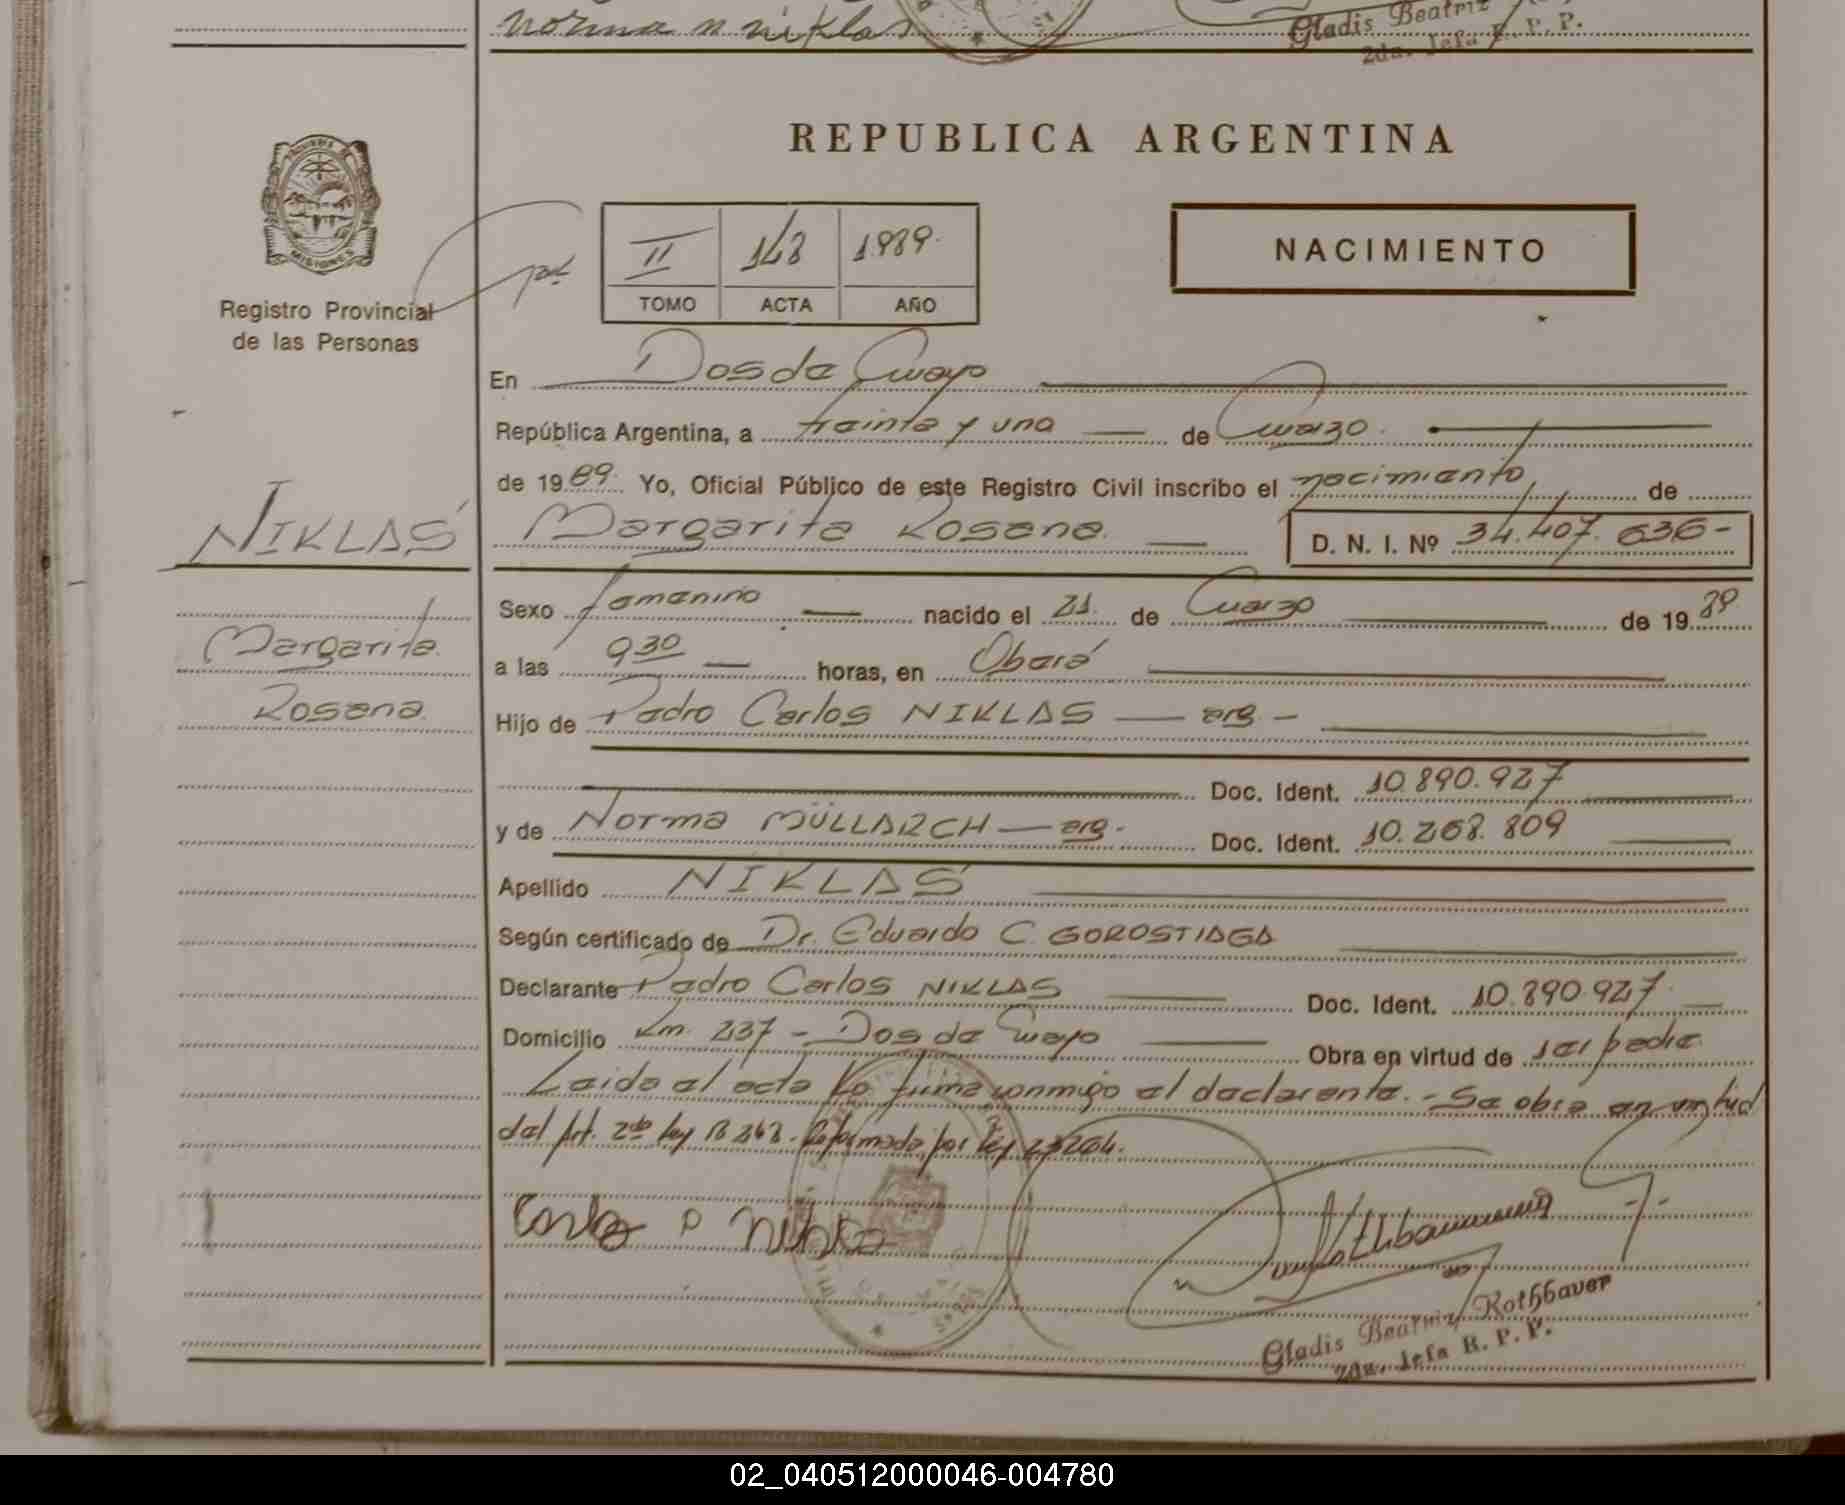 norma n niklas
Gladis Beatriz
2da. Jefa R. P. P.
REPUBLICA ARGENTINA
MISIONES
Registro Provincial
de las Personas
II 148 1989.
TOMO ACTA AÑO
NACIMIENTO
En Dos de Mayo
República Argentina, a treinta y uno de Marzo.
de 19 89. Yo, Oficial Público de este Registro Civil inscribo el nacimiento de
NIKLAS
Margarita Rosana. D. N. I. Nº 34.407.636-
Sexo femenino nacido el 21. de Marzo de 19 89
Margarita
a las 9 30 horas, en Oberá
Rosana.
Hijo de Pedro Carlos NIKLAS — arg. —
Doc. Ident. 10.890.927
y de Norma MÜLLARCH — arg. Doc. Ident. 10.268.809
Apellido NIKLAS
Según certificado de Dr. Eduardo C. GOROSTIAGA
Declarante Pedro Carlos NIKLAS Doc. Ident. 10.890.927.
Domicilio Km. 237 - Dos de Mayo Obra en virtud de ser padre.
Leida el acta la firma conmigo el declarante. - Se obra en virtud
del Art. 2do Ley 18248. Reformada por Ley 23264.
Carlos P Niklas
Gladis Beatriz Rothbauer
2da. Jefa R. P. P.
02_040512000046-004780